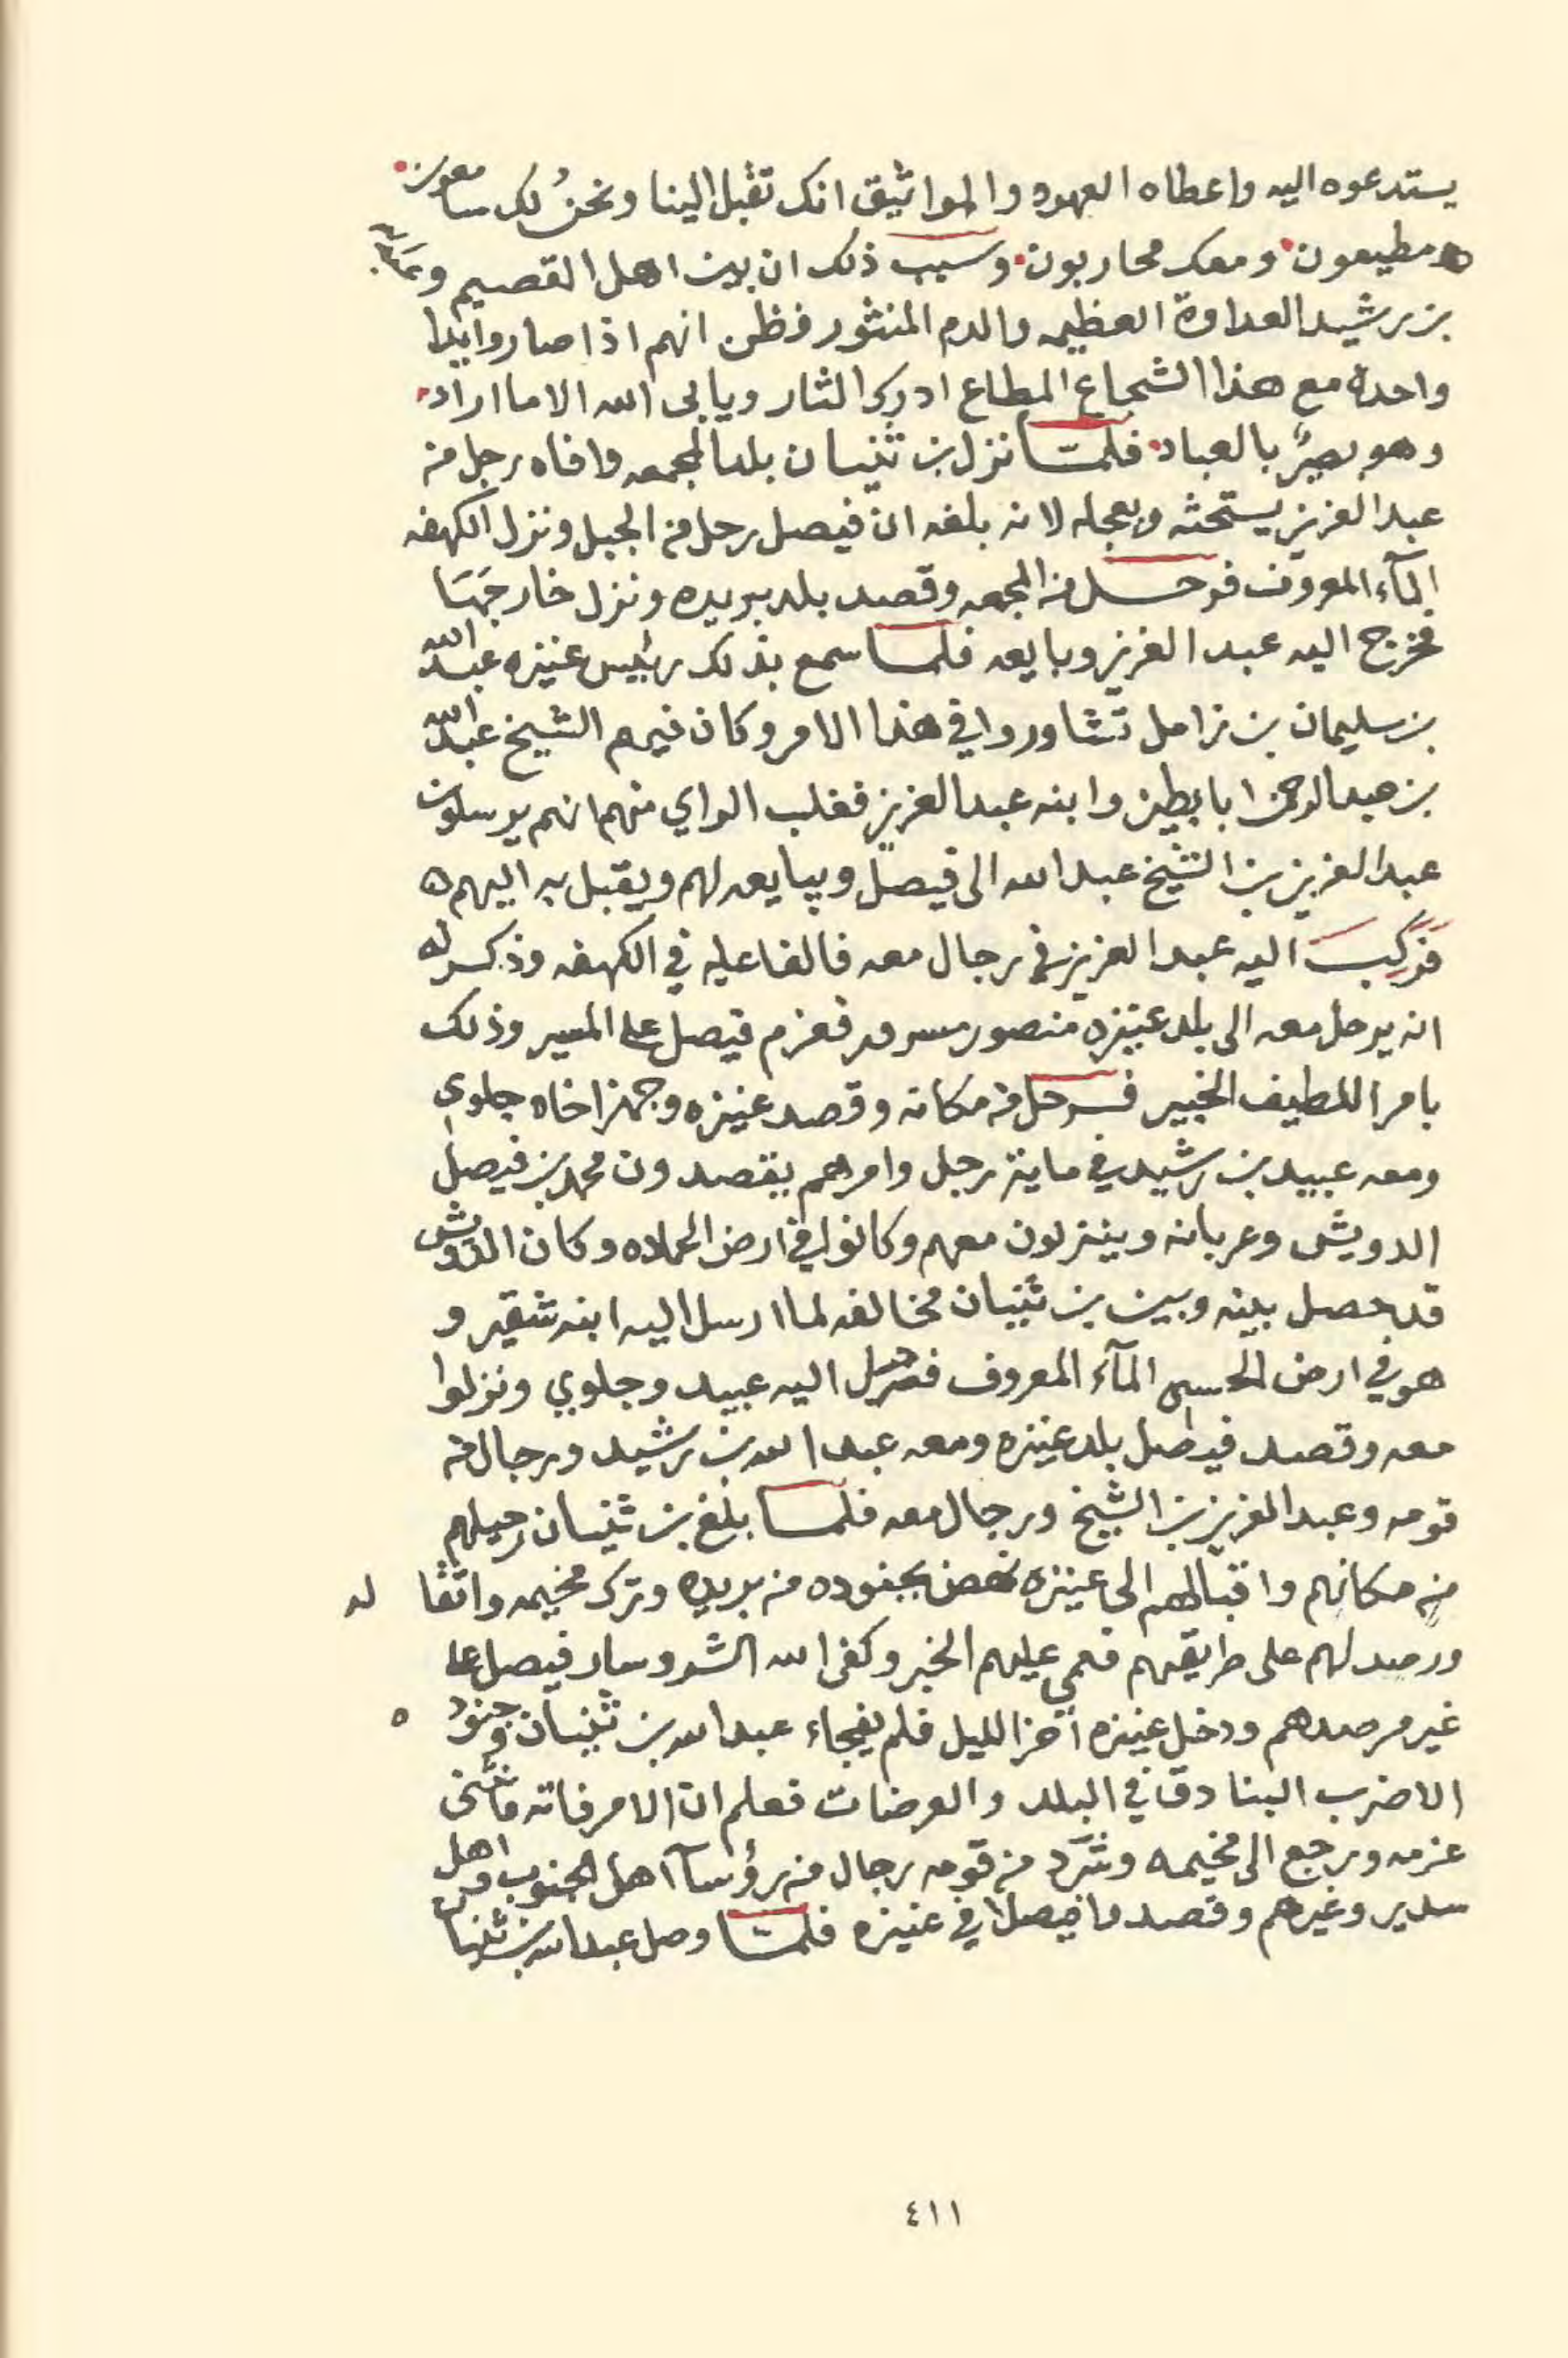 يستدعوه اليه واعطاه العهود والمواثيق انك تقبل الينا ونحنُ لك سامعون
ومطيعون ومعك محاربون وسبب ذلك ان بين اهل القصيم و
بن رشيد العداوة العظيمه والدم المنثور فظن انهم اذا صاروا يدا
واحدة مع هذا الشجاع المطاع ادرك الثار ويابى الله الا ما اراد
وهو بصيرٌ بالعباد فلمّا نزل بن ثنيان بلد المجمعه وافاه رجل من
عبدالعزيز يستحثه ويعجله لانه بلغه ان فيصل رحل من الجبل ونزل الكهفه
المآء المعروف فرحل من المجمعه وقصد بلد بريده ونزل خارجَهَا
فخرج اليه عبدالعزيز وبايعه فلما سمع بذلك رئيس عنيزه عبدالله
بن سليمان بن زامل تشاوروا في هذا الامر وكان فيهم الشيخ عبدالله
بن عبدالرحمن ابا بطين وابنه عبدالعزيز فغلب الراي منهم انهم يرسلون
عبدالعزيز بن الشيخ عبدالله الى فيصل ويبايعه لهم ويقبل به اليهم ه
فَرَكِبَ اليه عبدالعزيز في رجال معه فالفا عليه في الكهفه وذكر له
انه يرحل معه الى بلد عنيزه منصور مسرور فعزم فيصل على المسير وذلك
بامر اللطيف الخبير فرحل من مكانه وقصد عنيزه وجهز اخاه جلوي
ومعه عبيد بن رشيد في ماية رجل وامرهم يقصدون محمد بن فيصل
الدويش وعربانه وينزلون معهم وكانوا في ارض الحماده وكان الدويش
قد حصل بينه وبين بن ثنيان مخالفه لما ارسل اليه ابنه شقير و
هو في ارض الحسي المآء المعروف فرحل اليه عبيد وجلوي ونزلوا
معه وقصد فيصل بلد عنيزه ومعه عبدالله بن رشيد ورجال من
قومه وعبدالعزيز بن الشيخ ورجال معه فلما بلغ بن ثنيان رحيلهم
من مكانهم واقبالهم الى عنيزه نهض بجنوده من بريده وترك مخيمه واثقا له
ورصد لهم على طريقهم فعمي عليهم الخبر وكفى الله الشر وسار فيصل على
غير مرصدهم ودخل عنيزه آخر الليل فلم يفجاء عبدالله بن ثنيان وجنوده
الا ضرب البنادق في البلد والعرضات فعلم ان الامر فاته فانثنى
عزمه ورجع الى مخيمه وشرَد من قومه رجال من رؤسآ اهل الجنوب واهل
سدير وغيرهم وقصدوا فيصلا في عنيزه فلمّا وصل عبدالله بن ثنيان
٤١١